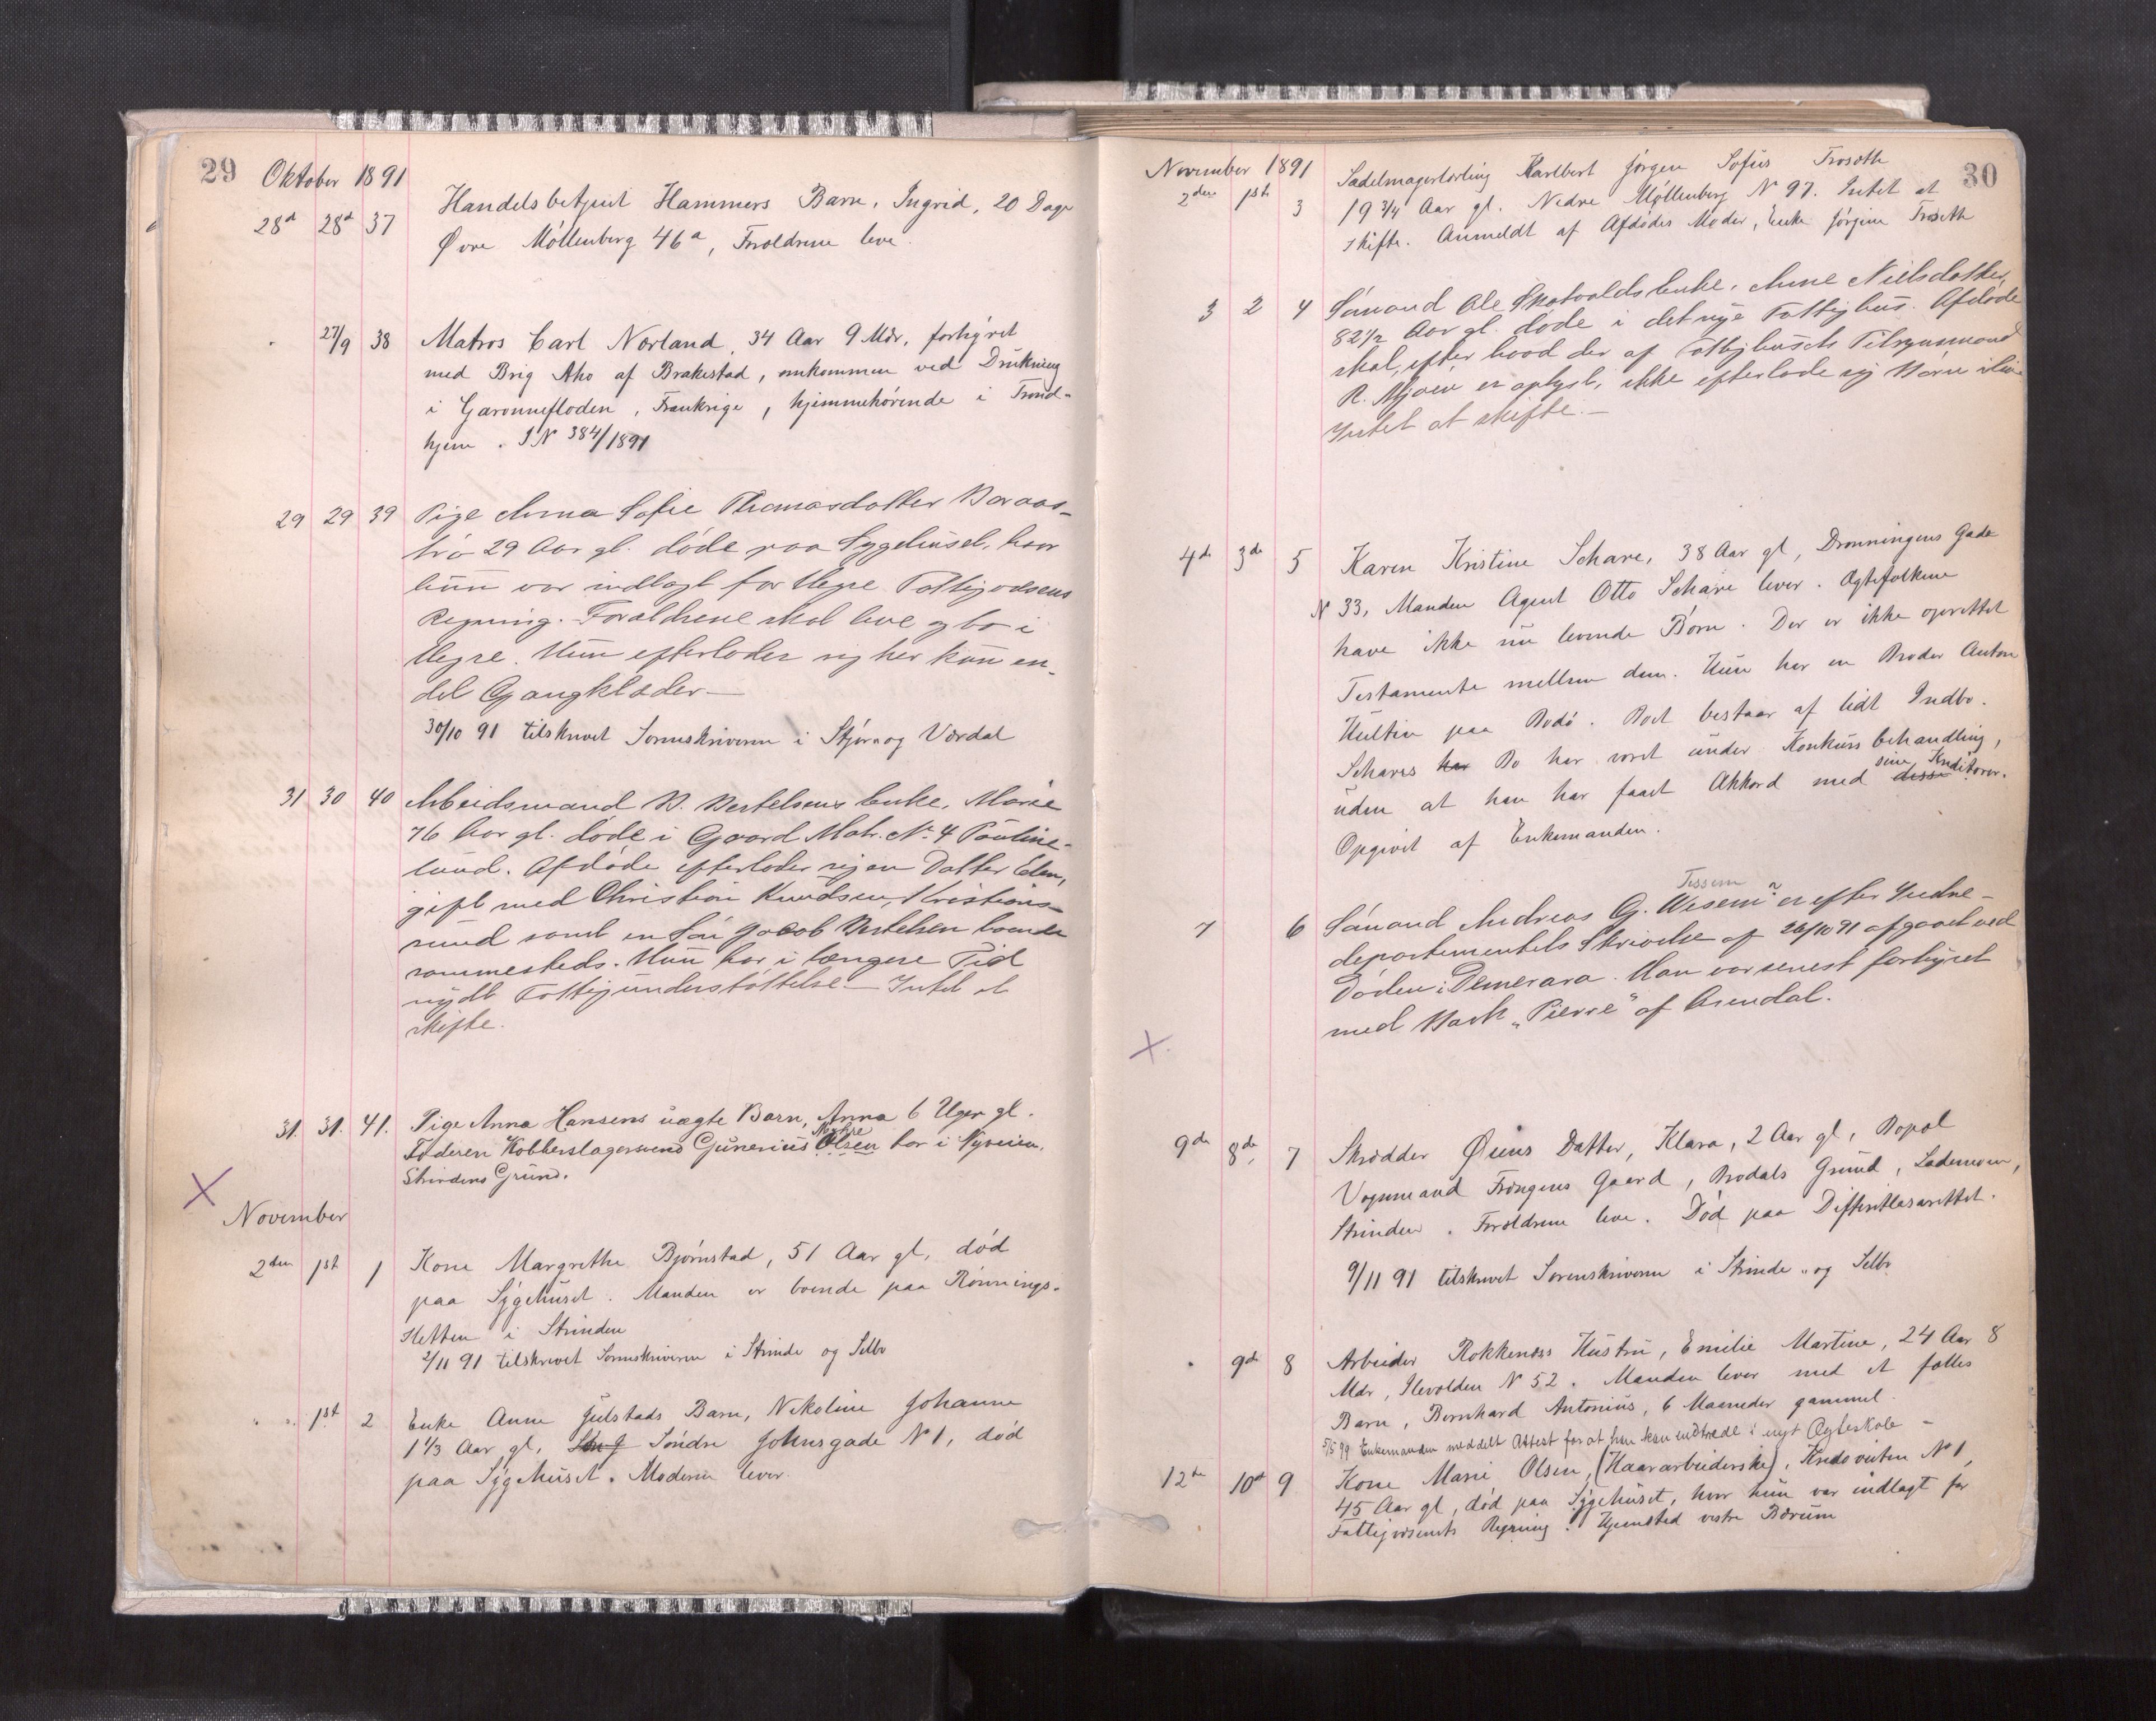 29
Oktober 1891
28d 28d 37 Handelsbetjent Hammers Barn, Ingrid, 20 Dage
Øvre Møllenberg 46a, Forældrene leve.
" 27/9 38 Matros Carl Nørland, 34 Aar 9 Mdr, forhyret
med Brig Aho af Brakestad, omkommen ved Drukning
i Garonnefloden, Frankrige, hjemmehørende i Trond-
hjem. J N 384/1891
29 29 39 Pige Anna Sofie Thomasdatter
29 Aar gl. døde paa Sygehuset, hvor
hun var indlagt for Hegre Fattigvæsens
Regning. Forældrene skal leve og bo i
Hegre. Hun efterlader sig her kun en-
del Gangklæder
30/10 91 tilskrevet Sorenskriveren i Stjør- og Værdal
31 30 40 Arbeidsmand B. Bertelsens Enke, Marie
76 Aar gl. døde i Gaard Matr. No. 4 Pauline-
lund. Afdøde efterlader sig en Datter Elen,
gift med Christian Knudsen, Kristian-
sund samt en Søn Jacob Bertelsen boende
sammesteds. Hun har i længere Tid
nydt Fattigunderstøttelse. Intet at
skifte.
31. 31. 41. Pige Anna Hansens uægte Barn, Anna 6 Uger gl.
Faderen Kobberslagersvend Gunerius Olsen bor i Nyveien,
Strindens Grund.
X
November
2den 1st 1 Kone Margrethe Bjørnstad, 51 Aar gl, død
paa Sygehuset. Manden er boende paa Rønnings-
sletten i Strinden
2/11 91 tilskrevet Sorenskriveren i Strinde og Selbo
" " 1st 2 Enke Anne Julstads Barn, Nikoline Johanne
1 1/3 Aar gl, Søndre Johnsgade N 1, død
paa Sygehuset. Moderen lever.
30
November 1891
2den 1st 3 Sadelmagerlærling Karlbert Jørgen Sofus Trøseth
19 3/4 Aar gl. Nedre Møllenberg N 97. Intet at
skifte. Anmeldt af Afdødes Moder, Enke Jørgine Trøseth
3 2 4 Sømand Ole Skatvolds Enke, Anne Nielsdatter,
82 1/2 Aar gl. døde i det nye Fattighus. Afdøde
skal, efter hvad der af Fattighusets Tilsynsmand
R. Mjøen er oplyst, ikke efterlade sig Børn ilive
Intet at skifte.
4de 3de 5 Karen Kristine Schare, 38 Aar gl, Dronningens Gade
N 33, Manden Agent Otto Schare lever. Ægtefolkene
have ikke nu levende Børn. Der er ikke oprettet
Testamente mellem dem. Hun har en Broder Anton
Hultin paa Bodø. Boet bestaar af lidt Indbo.
Schares har Bo har været under Konkursbehandling,
uden at han har faaet Akkord med disse sine Kreditorer.
Opgivet af Enkemanden.
Tessem
7 6 Sømand Andreas G. Wesem er efter Indre-
departementets Skrivelse af 26/10 91 afgaaet ved
Døden i Demerara. Han var senest forhyret
med Bark "Pierre" af Arendal.
X
9de 8de 7 Skrædder Øiens Datter, Klara, 2 Aar gl, Bopæl
Vognmand Gaard, Brodals Grund, Lademoen,
Strinden. Forældrene leve. Død paa Difteritlasarettet.
9/11 91 tilskrevet Sorenskriveren i Strinde- og Selbo
" 9de 8 Arbeider Rokkenæs Hustru, Emilie Martine, 24 Aar 8
Mdr, Ilevolden N 52. Manden lever med et fælles
Barn, Bernhard Antonius, 6 Maaneder gammel.
5/5 99 Enkemanden meddelt Attest for at han kan indtræde i nyt Ægteskab
12te 10de 9 Kone Marie Olsen, (Haararbeiderske), N 1,
45 Aar gl, død paa Sygehuset, hvor hun var indlagt for
Fattigvæsenets Regning. Hjemsted vestre Bærum